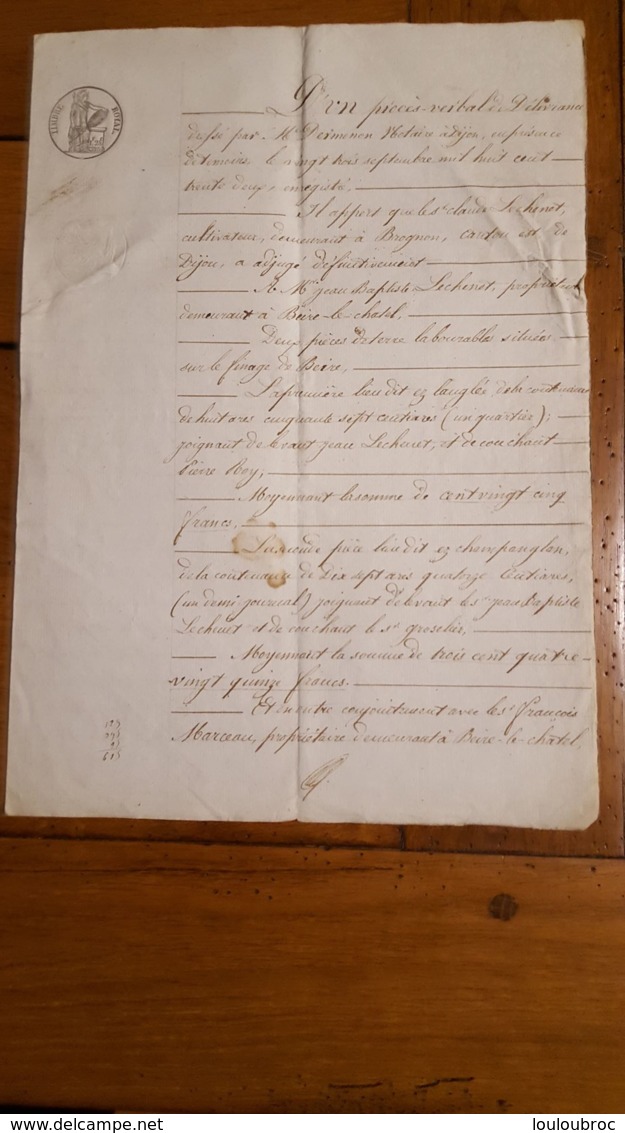 TIMBRE ROYAL
D'un procès-verbal de Délivrance
dressé par Me Dermenon Notaire à dijon, en présence
de temoins, le vingt trois septembre mil huit cent
trente deux, enregistré,
Il appert que le sr. claude Lechenet,
cultivateur, demeurant à Brognon, canton est de
Dijon, a adjugé définitivement
A Mr. jean Baptiste Lechenet, propriétaire
demeurant à Beire-le-chatel,
Deux pièces de terre labourables situées
sur le finage de Beire,
La première lieu dit ez langlée de la contenance
de huit ares cinquante sept centiares (un quartier);
joignant de levant jean Lechenet, et de couchant
Pierre Roy,
Moyennant la somme de cent vingt cinq
francs,
La seconde pièce lieu dit ez champanglan,
de la contenance de Dix sept ares quatorze Centiares,
(un demi journal) joignant de levant le sr. jean Baptiste
Lechenet et de couchant le sr. groselier,
Moyennant la somme de trois cent quatre-
vingt quinze francs.
Et en outre conjointement avec le sr. françois
Marceau, propriétaire demeurant à Beire-le-chatel,
louloubroc